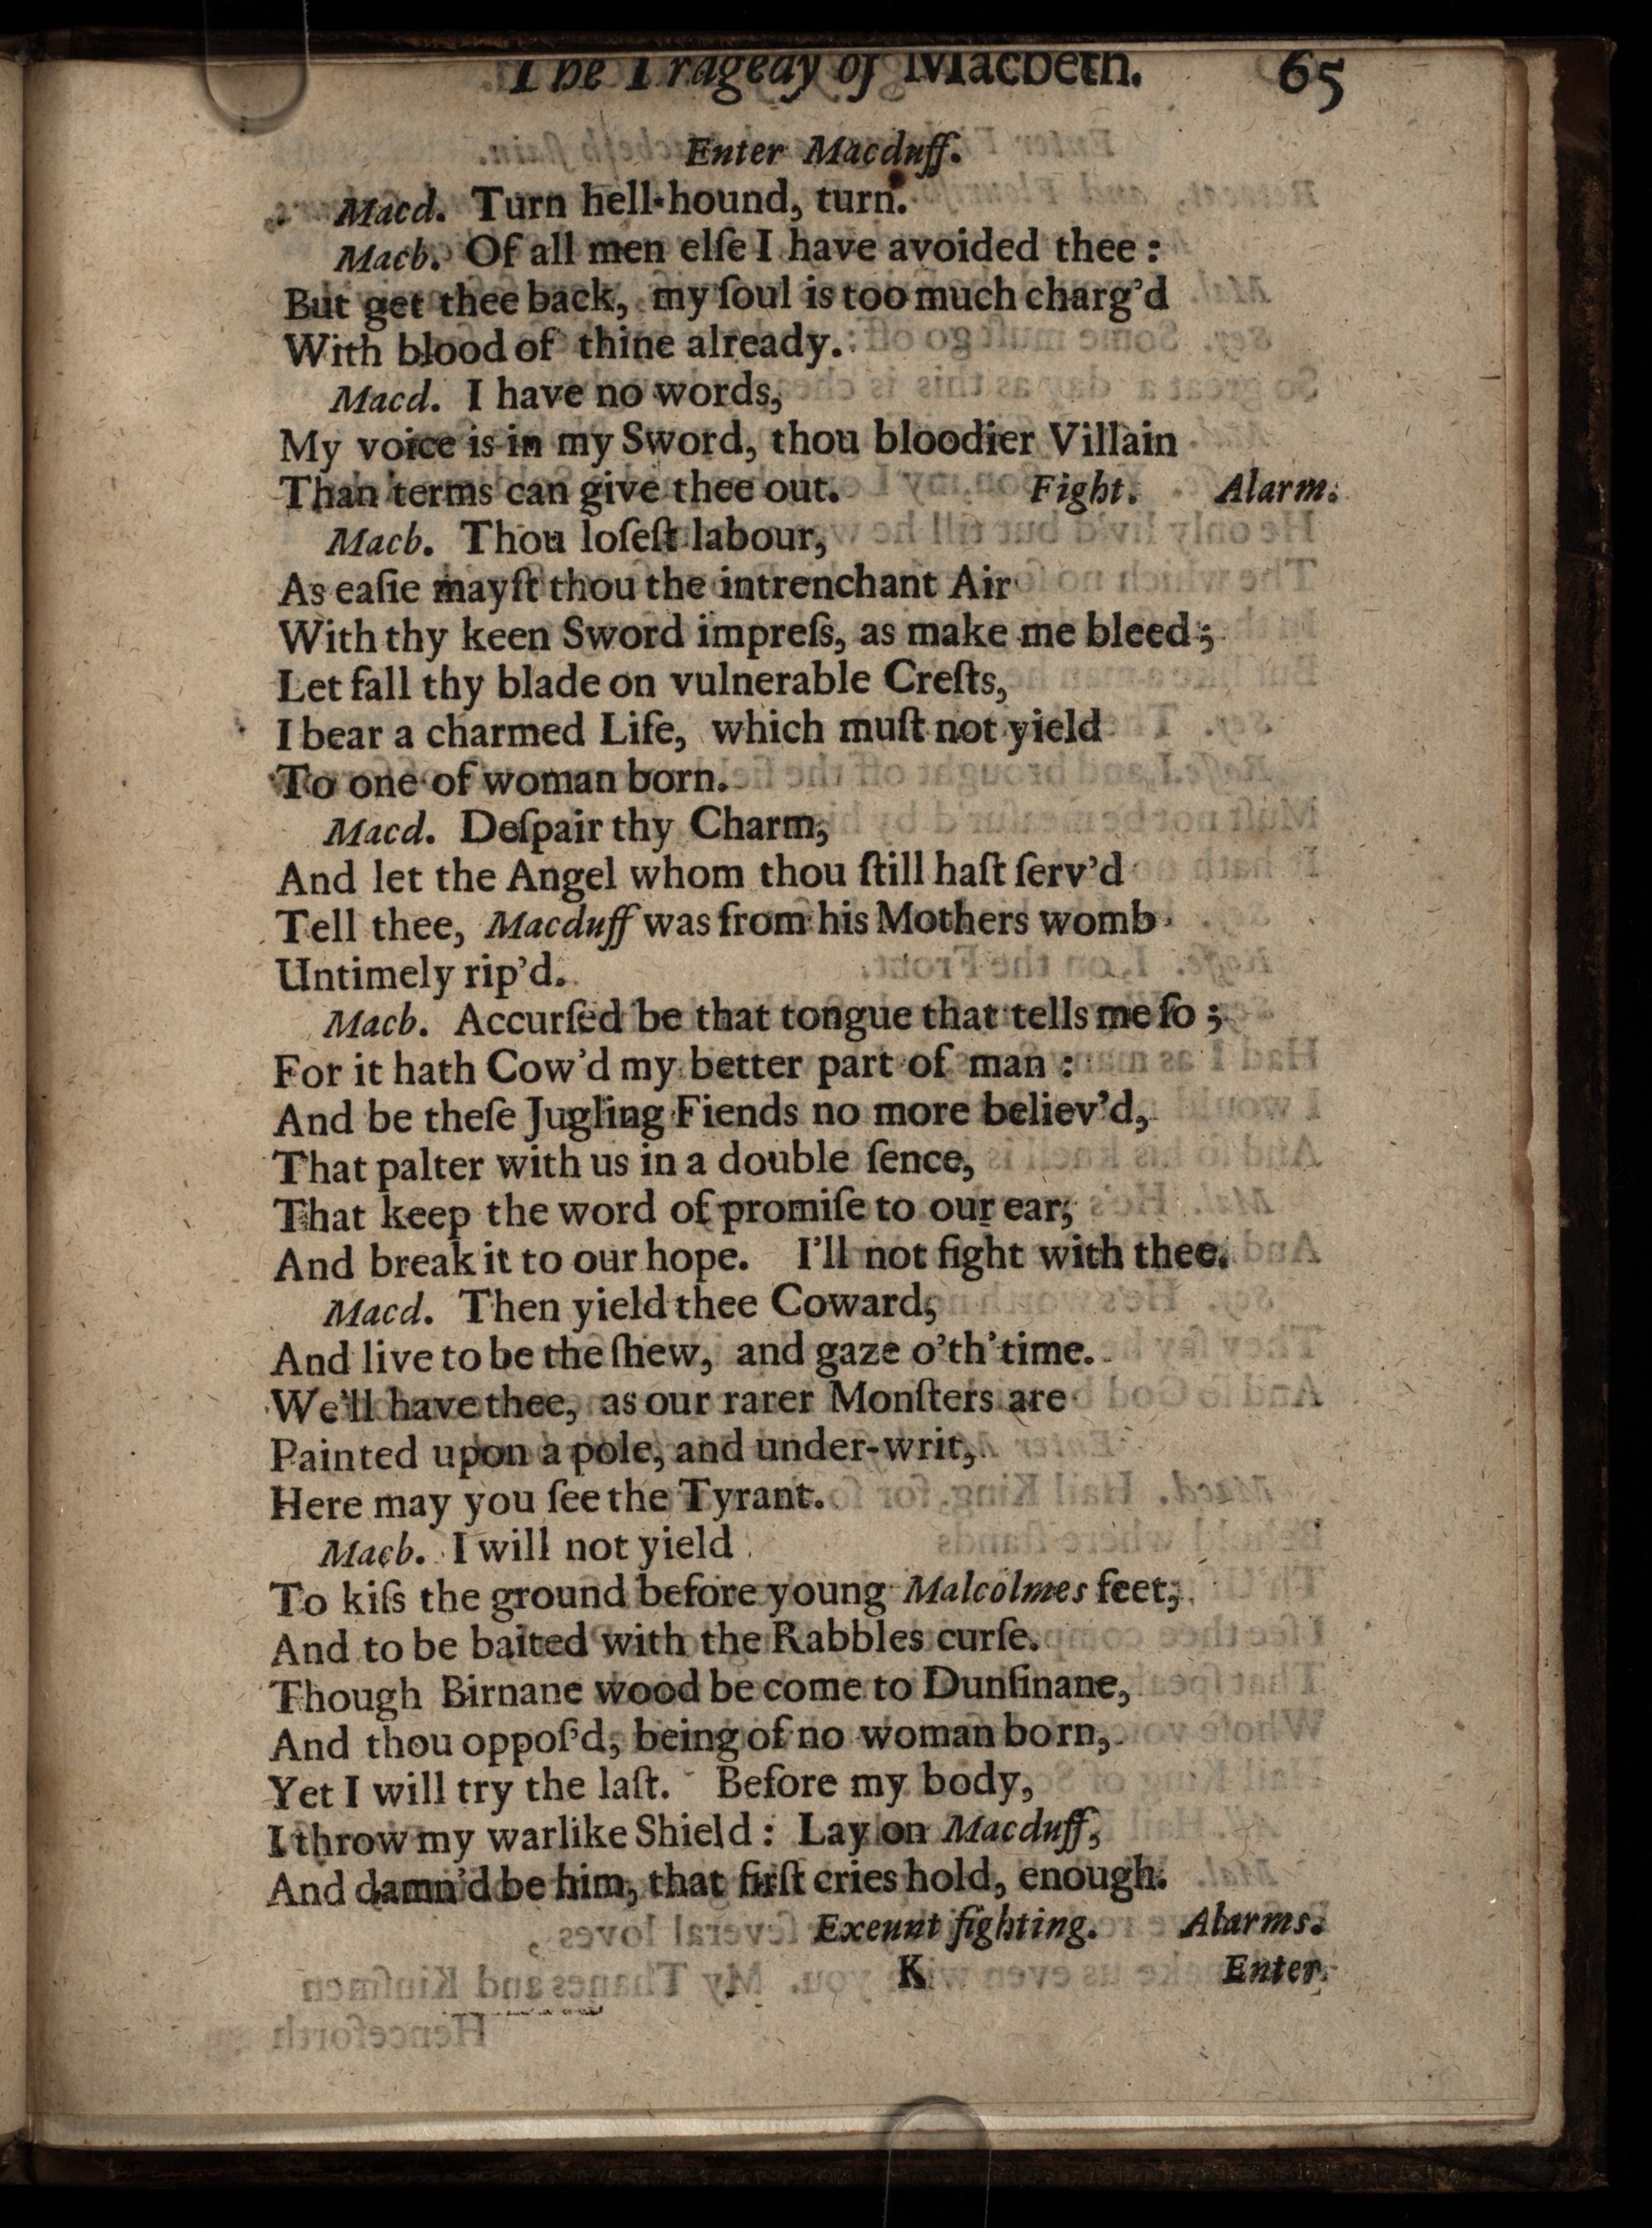 The Tragedy of Macbeth. 65
Enter Macduff.
Macd. Turn hell-hound, turn.
Macb. Of all men elſe I have avoided thee :
But get thee back, my ſoul is too much charg'd
With blood of thine already.
Macd. I have no words,
My voice is in my Sword, thou bloodier Villain
Than terms can give thee out. Fight. Alarm.
Macb. Thou loſeſt labour,
As eaſie mayſt thou the intrenchant Air
With thy keen Sword impreſs, as make me bleed ;
Let fall thy blade on vulnerable Creſts,
I bear a charmed Life, which muſt not yield
To one of woman born.
Macd. Deſpair thy Charm,
And let the Angel whom thou ſtill haſt ſerv'd
Tell thee, Macduff was from his Mothers womb
Untimely rip'd.
Macb. Accurſed be that tongue that tells me ſo ;
For it hath Cow'd my better part of man :
And be theſe Jugling Fiends no more believ'd,
That palter with us in a double ſence,
That keep the word of promiſe to our ear;
And break it to our hope. I'll not fight with thee.
Macd. Then yield thee Coward,
And live to be the ſhew, and gaze o'th' time.
We'll have thee, as our rarer Monſters are
Painted upon a pole, and under-writ,
Here may you ſee the Tyrant.
Macb. I will not yield
To kiſs the ground before young Malcolmes feet;
And to be baited with the Rabbles curſe.
Though Birnane wood be come to Dunſinane,
And thou oppoſ'd, being of no woman born,
Yet I will try the laſt. Before my body,
I throw my warlike Shield : Lay on Macduff,
And damn'd be him, that firſt cries hold, enough.
Exeunt fighting. Alarms.
K Enter